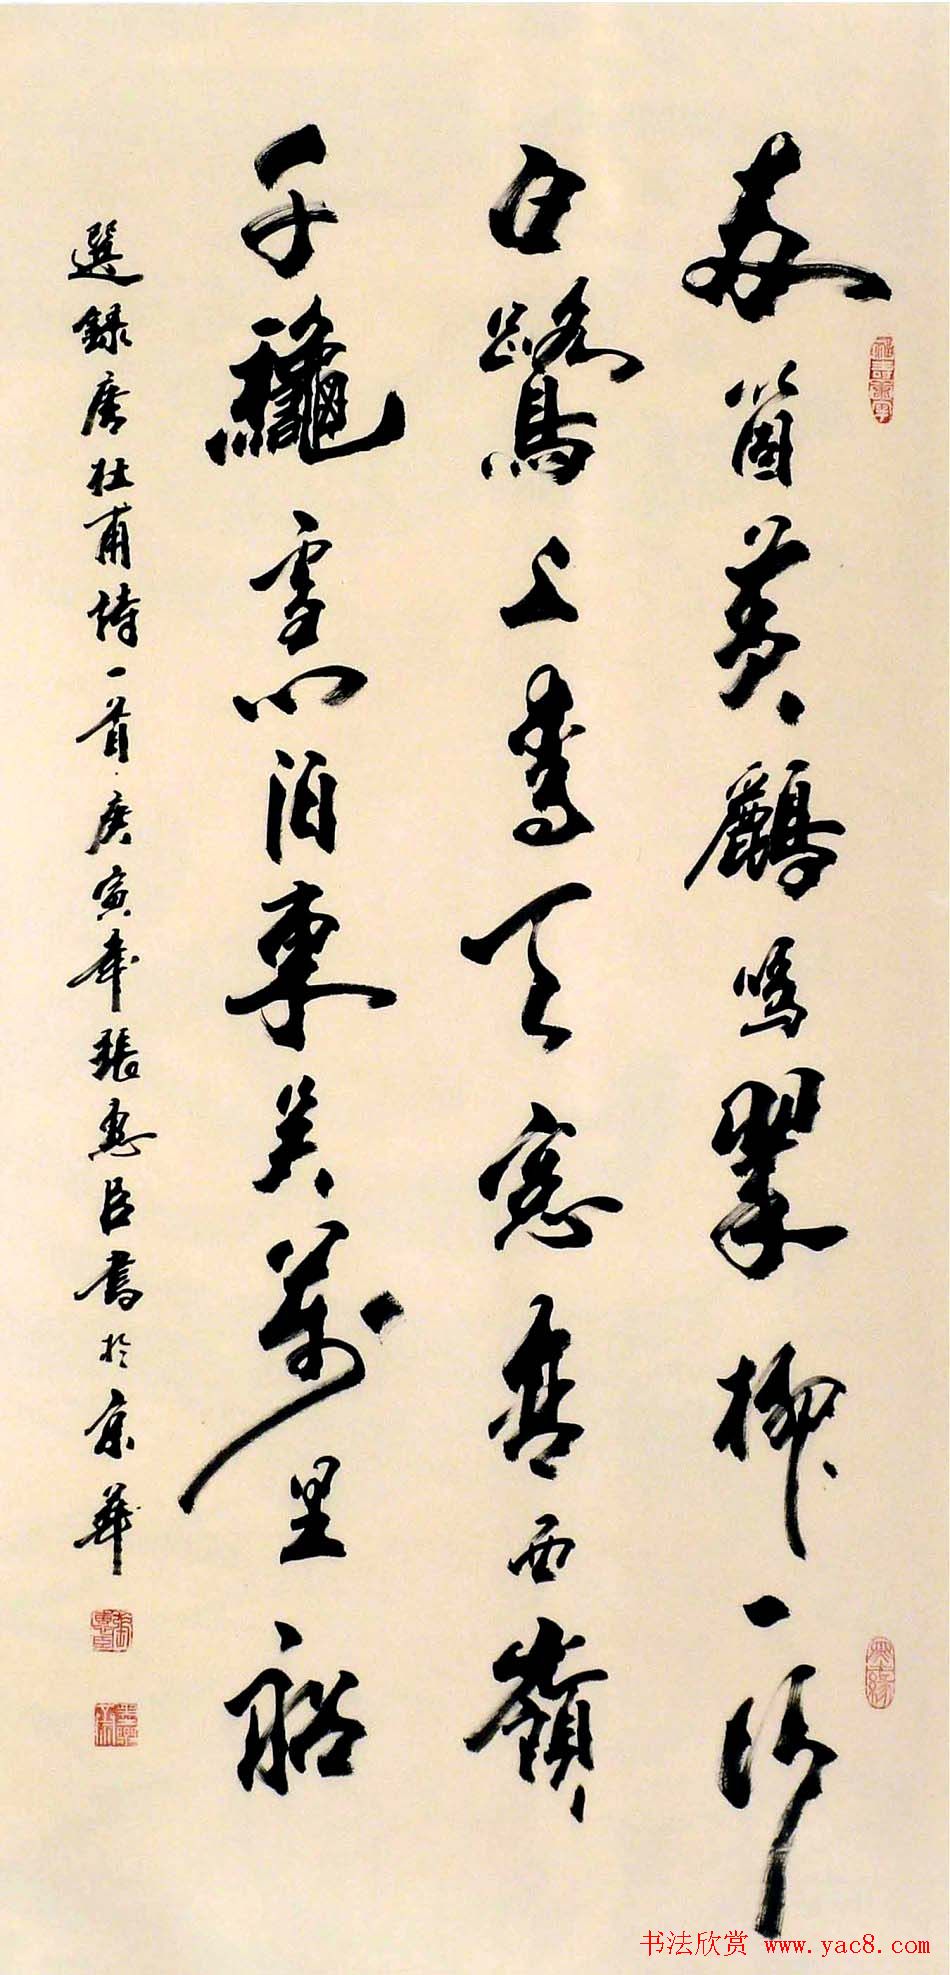 兩箇黄鸝鳴翠柳一行
白鷺上青天窓含西嶺
千龝雪門泊東吴萬里船
選録唐杜甫詩一首庚寅年張惠臣書於京華
书法欣赏 www.yac8.com